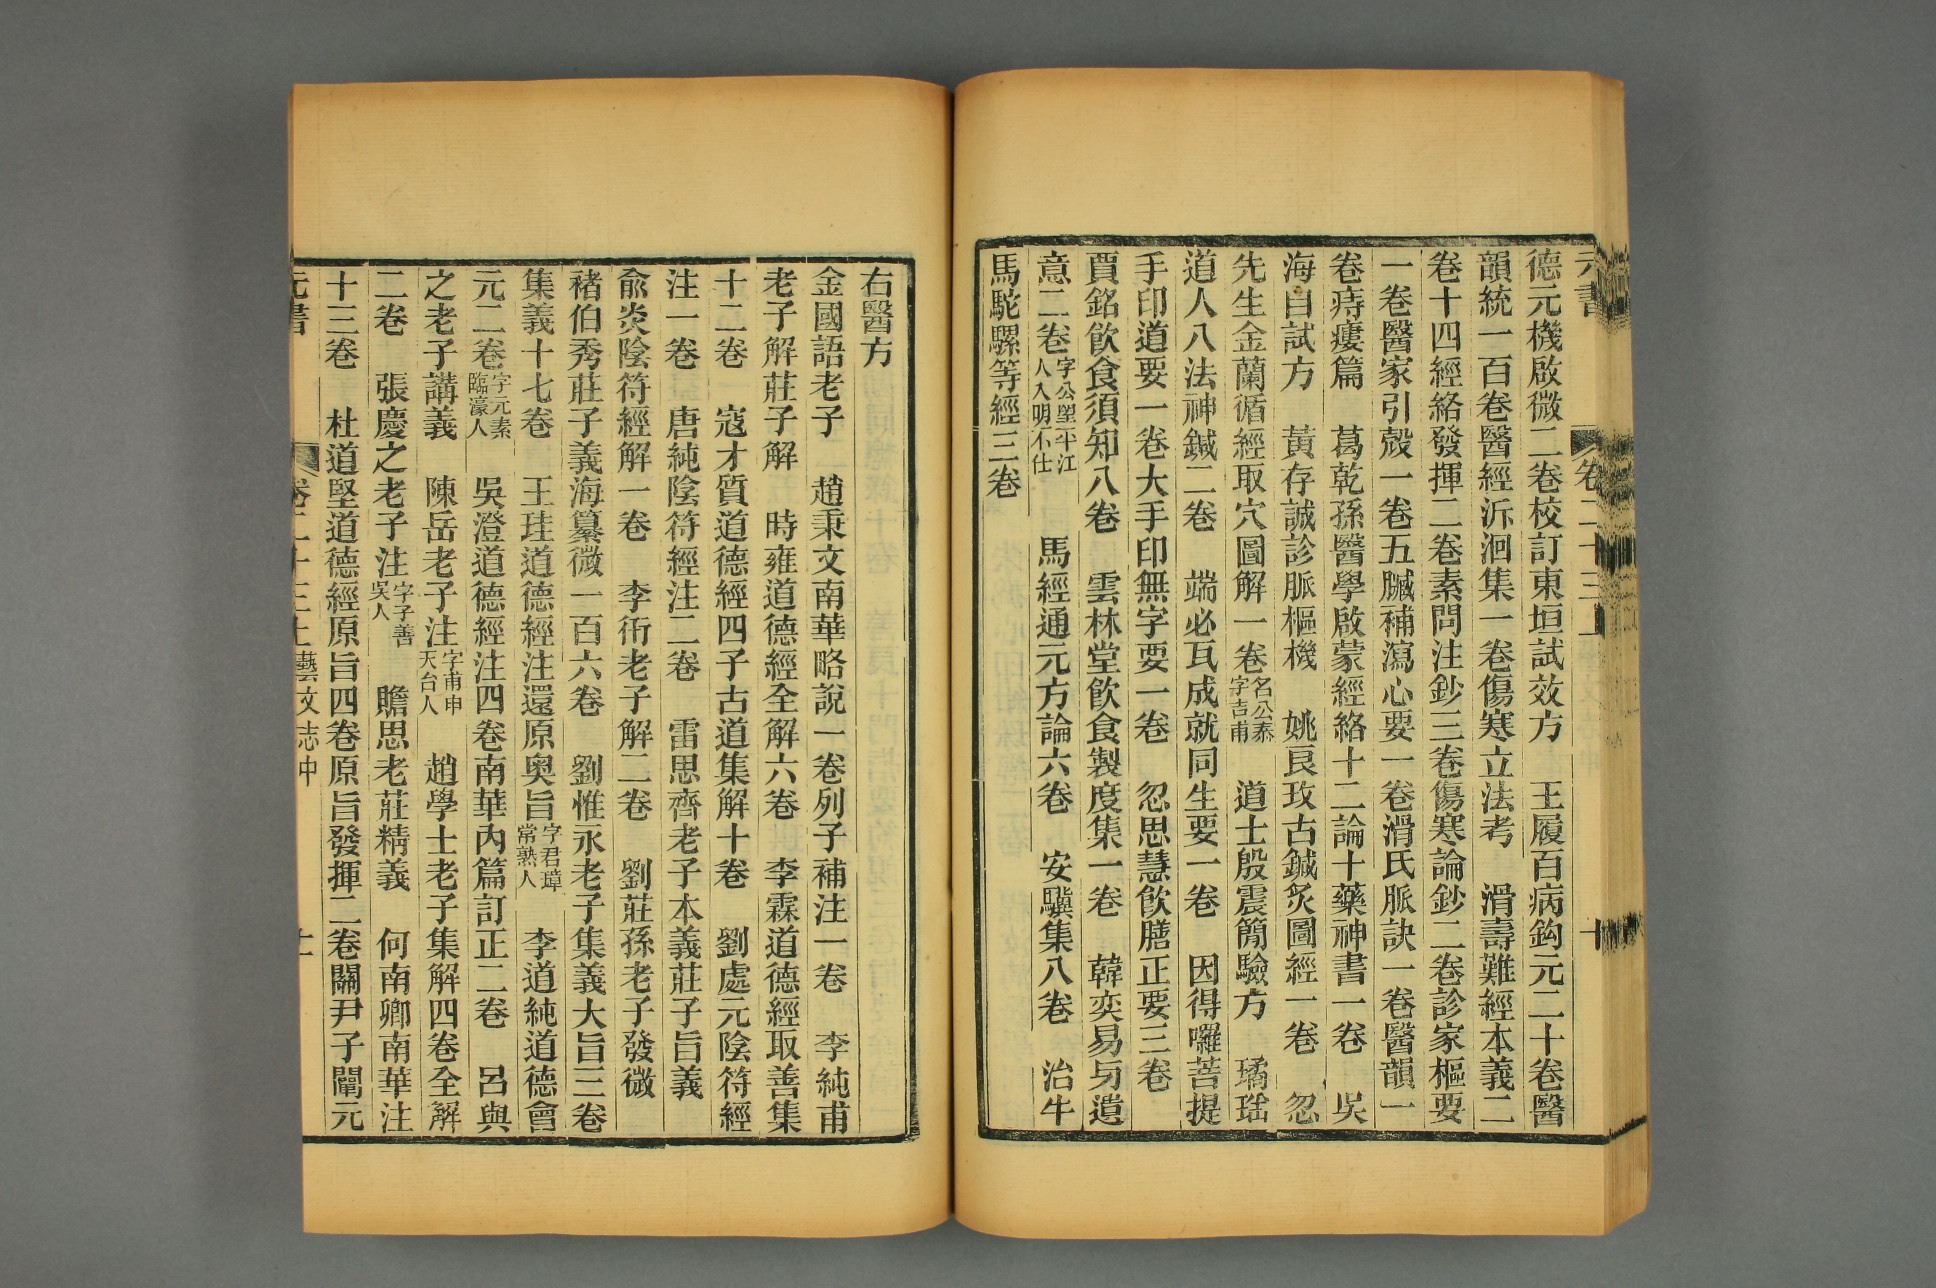 元書 卷二十三上 十
德元機啟微二卷校訂東垣試效方 王履百病鈎元二十卷醫
韻統一百卷醫經泝洄集一卷傷寒立法考 滑壽難經本義二
卷十四經絡發揮二卷素問注鈔三卷傷寒論鈔二卷診家樞要
一卷醫家引彀一卷五臟補瀉心要一卷滑氏脈訣一卷醫韻一
卷痔瘻篇 葛乾孫醫學啟蒙經絡十二論十藥神書一卷 吳
海自試方 黃存誠診脈樞機 姚良攷古鍼炙圖經一卷 忽
先生金蘭循經取穴圖解一卷名公泰字吉甫 道士殷震簡驗方 璚瑤
道人八法神鍼二卷 端必瓦成就同生要一卷 因得囉菩提
手印道要一卷大手印無字要一卷 忽思慧飲膳正要三卷
賈銘飲食須知八卷 雲林堂飲食製度集一卷 韓奕易牙遺
意二卷字公望平江人入明不仕 馬經通元方論六卷 安驥集八卷 治牛
馬駝騾等經三卷
右醫方
金國語老子 趙秉文南華略說一卷列子補注一卷 李純甫
老子解莊子解 時雍道德經全解六卷 李霖道德經取善集
十二卷 寇才質道德經四子古道集解十卷 劉處元陰符經
注一卷 唐純陰符經注二卷 雷思齊老子本義莊子旨義
俞炎陰符經解一卷 李衎老子解二卷 劉莊孫老子發微
褚伯秀莊子義海纂微一百六卷 劉惟永老子集義大旨三卷
集義十七卷 王珪道德經注還原奧旨字君璋常熟人 李道純道德會
元二卷字元素臨濠人 吳澄道德經注四卷南華內篇訂正二卷 呂與
之老子講義 陳岳老子注字甫申天台人 趙學士老子集解四卷全解
二卷 張慶之老子注字子善吳人 贍思老莊精義 何南卿南華注
十三卷 杜道堅道德經原旨四卷原旨發揮二卷關尹子闡元
元書 卷二十三上藝文志中